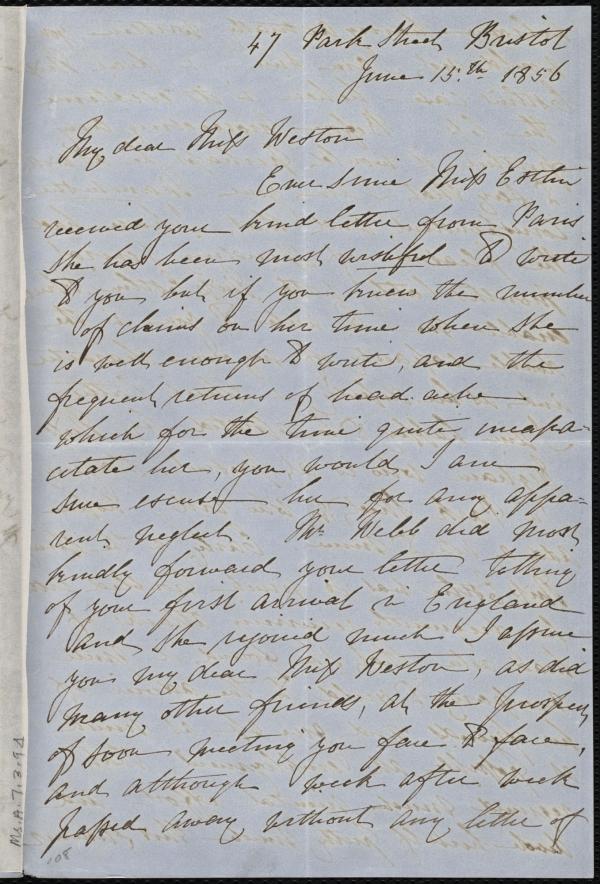 47 Park Street Bristol
June 15.th 1856
My dear Miss Weston
Ever since Miss Estlin
received your kind letter from Paris
she has been most wishful to write
to you but if you knew the number
of claims on her time when she
is well enough to write, and the
frequent returns of head-ache
which for the time quite incapa-
citate her, you would I am
sure excuse her for any appa-
rent neglect. Mr. Webb did most
kindly forward your letter telling
of your first arrival in England
and she rejoiced much I assure
you my dear Miss Weston, as did
many other friends, at the prospect
of soon meeting you face to face,
and although week after week
passed away without any letter of
Ms.A.7.3.94
108